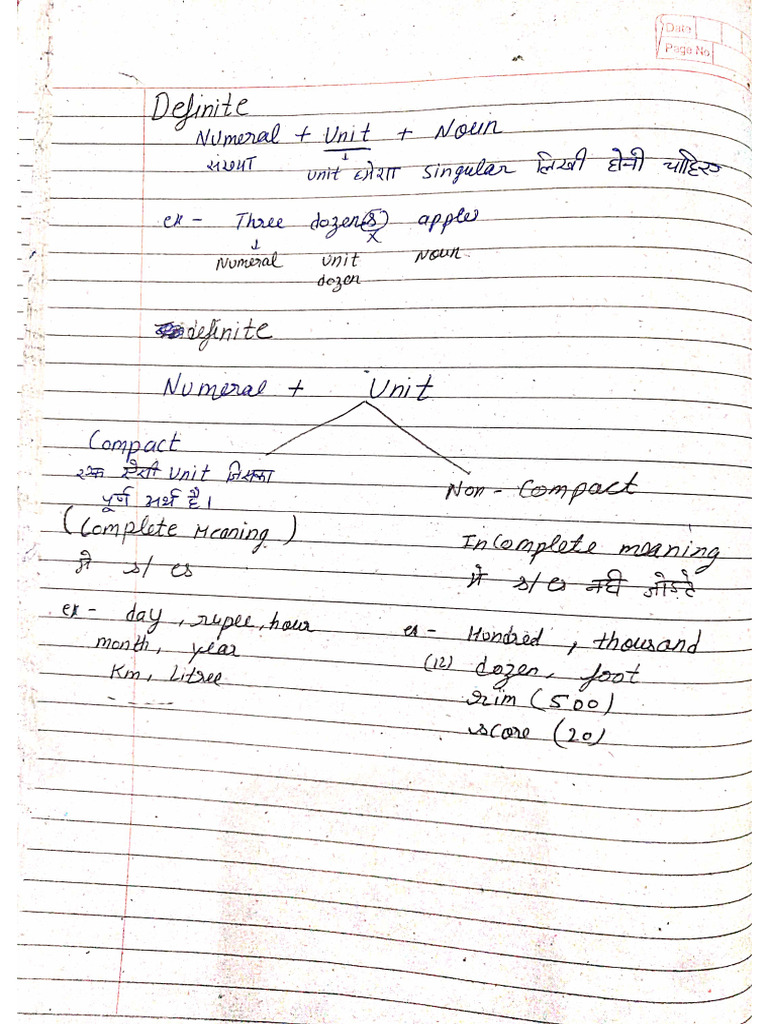 Date
Page No
Definite
Numeral + Unit + Noun
संख्या unit हमेशा singular लिखी होनी चाहिए
ex - Three dozen(s) apples
x
Numeral unit Noun
dozen
definite
Numeral + Unit
Compact
एक ऐसी unit जिसका
पूर्ण अर्थ है।
(Complete Meaning)
मे s/es
ex - day, rupee, hour
month, year
Km, Litree
-----
Non - Compact
Incomplete meaning
मे s/es नही जोडते
ex - Hundred, thousand
(12) dozen, foot
rim (500)
score (20)